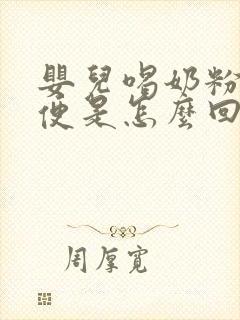 嬰兒喝奶粉
便是怎麼回
周厚寬